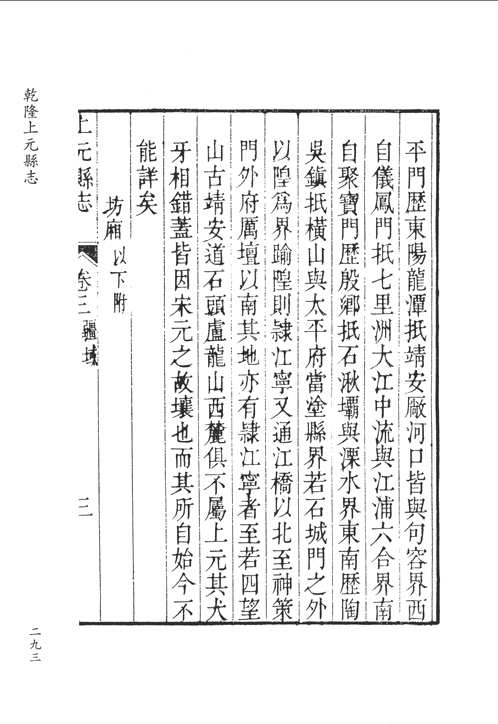 乾隆上元縣志
平門歷東陽龍潭抵靖安厰河口皆與句容界西
自儀鳳門抵七里洲大江中流與江浦六合界南
自聚寶門歷殷鄉抵石湫壩與溧水界東南歷陶
吳鎮抵橫山與太平府當塗縣界若石城門之外
以隍爲界踰隍則隷江寧又通江橋以北至神策
門外府厲壇以南其地亦有隷江寧者至若四望
山古靖安道石頭盧龍山西麓俱不屬上元其犬
牙相錯蓋皆因宋元之故壤也而其所自始今不
能詳矣
坊廂以下附
上元縣志 卷三疆域 三
二九三